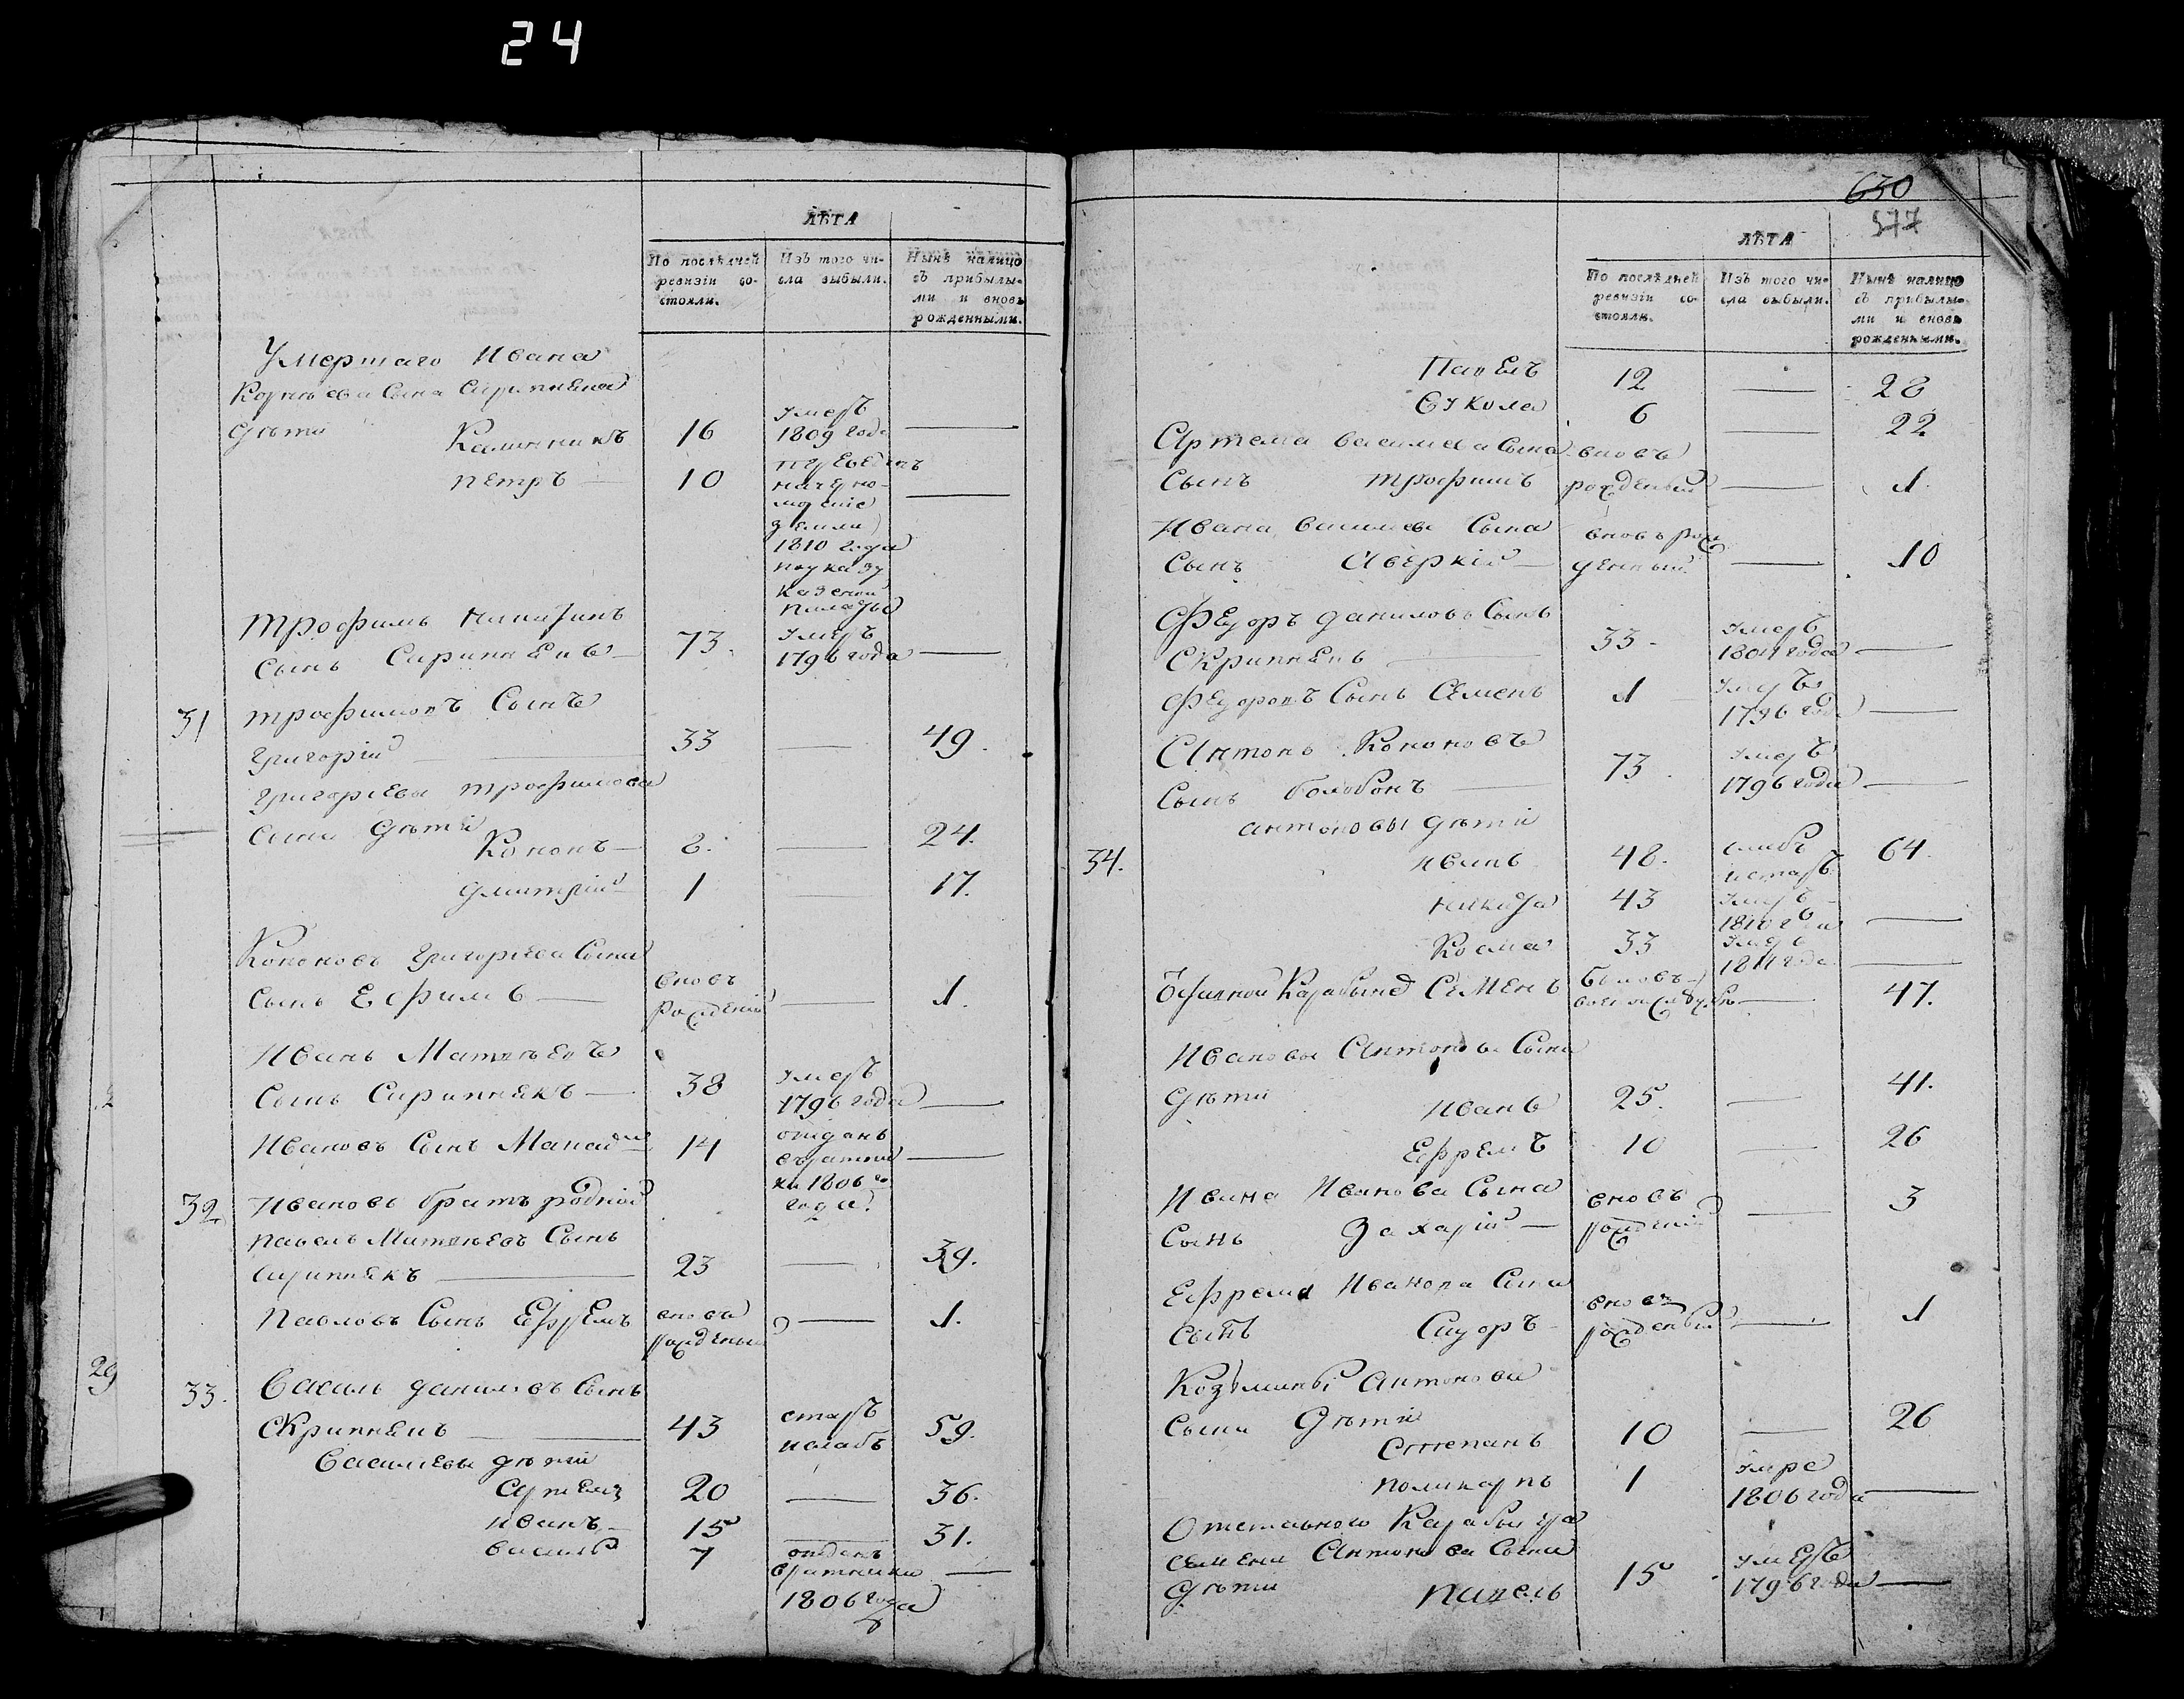 24
ЛѢТА
По послѣдней ревизіи состояли.
Изъ того числа выбыли.
Нынѣ налицо съ прибылыми и вновь рожденными.
Умершаго Ивана
сына
дѣти Калинникъ 16 умеръ 1809 года —
Петръ — 10 переведенъ
земли
1810 года
по указу
казеной
палаты —
Трофимъ
сынъ 73. умеръ 1796 года —
31 Трофимовъ сынъ
Григорій — 33 — 49.
Григорьевы Трофимова
сына дѣти
Кононъ — 8. — 24.
Дмитрій — 1 — 17.
Кононовъ Григорьева сына
сынъ Ефимъ — вновь рожденый — 1.
Иванъ Матвѣевъ
сынъ — 38 умеръ 1796 года —
Ивановъ сынъ 14 отданъ
1806 го года —
32. Ивановъ братъ родной
Павелъ Матвѣевъ сынъ
— 23 — 39.
Павловъ сынъ Ефремъ вновь рожденый — 1.
29
33. Василь Даниловъ сынъ
Скрипнекъ — 43 старъ 59.
Васильевы дѣти
Артемъ 20 — 36.
Иванъ — 15 — 31.
Василь 7 отданъ
1806 года —
630
577
ЛѢТА
По послѣдней ревизіи состояли.
Изъ того числа выбыли.
Нынѣ налицо съ прибылыми и вновь рожденными.
Павелъ 12 — 28
6 — 22
Артема Васильева сына вновь
сынъ Трофимъ рожденый — 1.
Ивана Васильева сына вновь рож
сынъ Аверкій — денный — 10
Федоръ Даниловъ сынъ
Скрипнекъ — 33 — умеръ года —
Федоровъ сынъ Семенъ 1 умеръ 1796 года —
Антонъ Кононовъ
сынъ — 73. умеръ 1796 года —
Антоновы дѣти
34. Иванъ 48. слабъ и старъ 64.
43 умеръ 1810 года —
Косма 33 умеръ 1811 года —
Семенъ — 47.
Ивановы Антонова сына
дѣти Иванъ 25. — 41.
Ефремъ 10 — 26
Ивана Иванова сына вновь
сынъ Захарій — рожденый — 3
Ефрема Иванова сына вновь
сынъ рожденый — 1
Козьмины Антонова
сына дѣти
Степанъ 10 — 26
Поликарпъ 1 умре 1806 года —
Отставного
Семена Антонова сына
дѣти Павелъ 15 умеръ 1796 года —